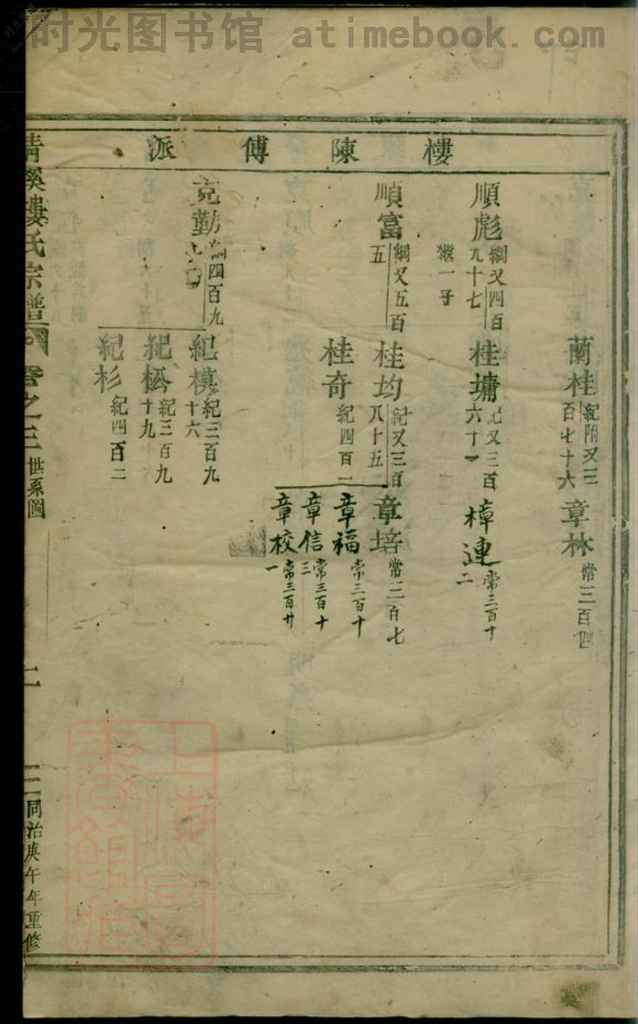 时光图书馆 atimebook.com
樓陳傅派
蘭桂 紀附又三百七十六
章林 常三百四
順彪 綱又四百九十七 繼一子
桂墉
樟連 常三百十二
順富 綱又五百五
桂均 紀又三百八十五
章培 常三百七
桂奇 紀四百一
章福 常三百十
章信 常三百十三
章校 常三百廿一
克勤 綱四百九
紀模 紀三百九十六
紀 紀三百九十九
紀杉 紀四百二
清溪樓氏宗譜 卷之三 世系圖
同治庚午年重修